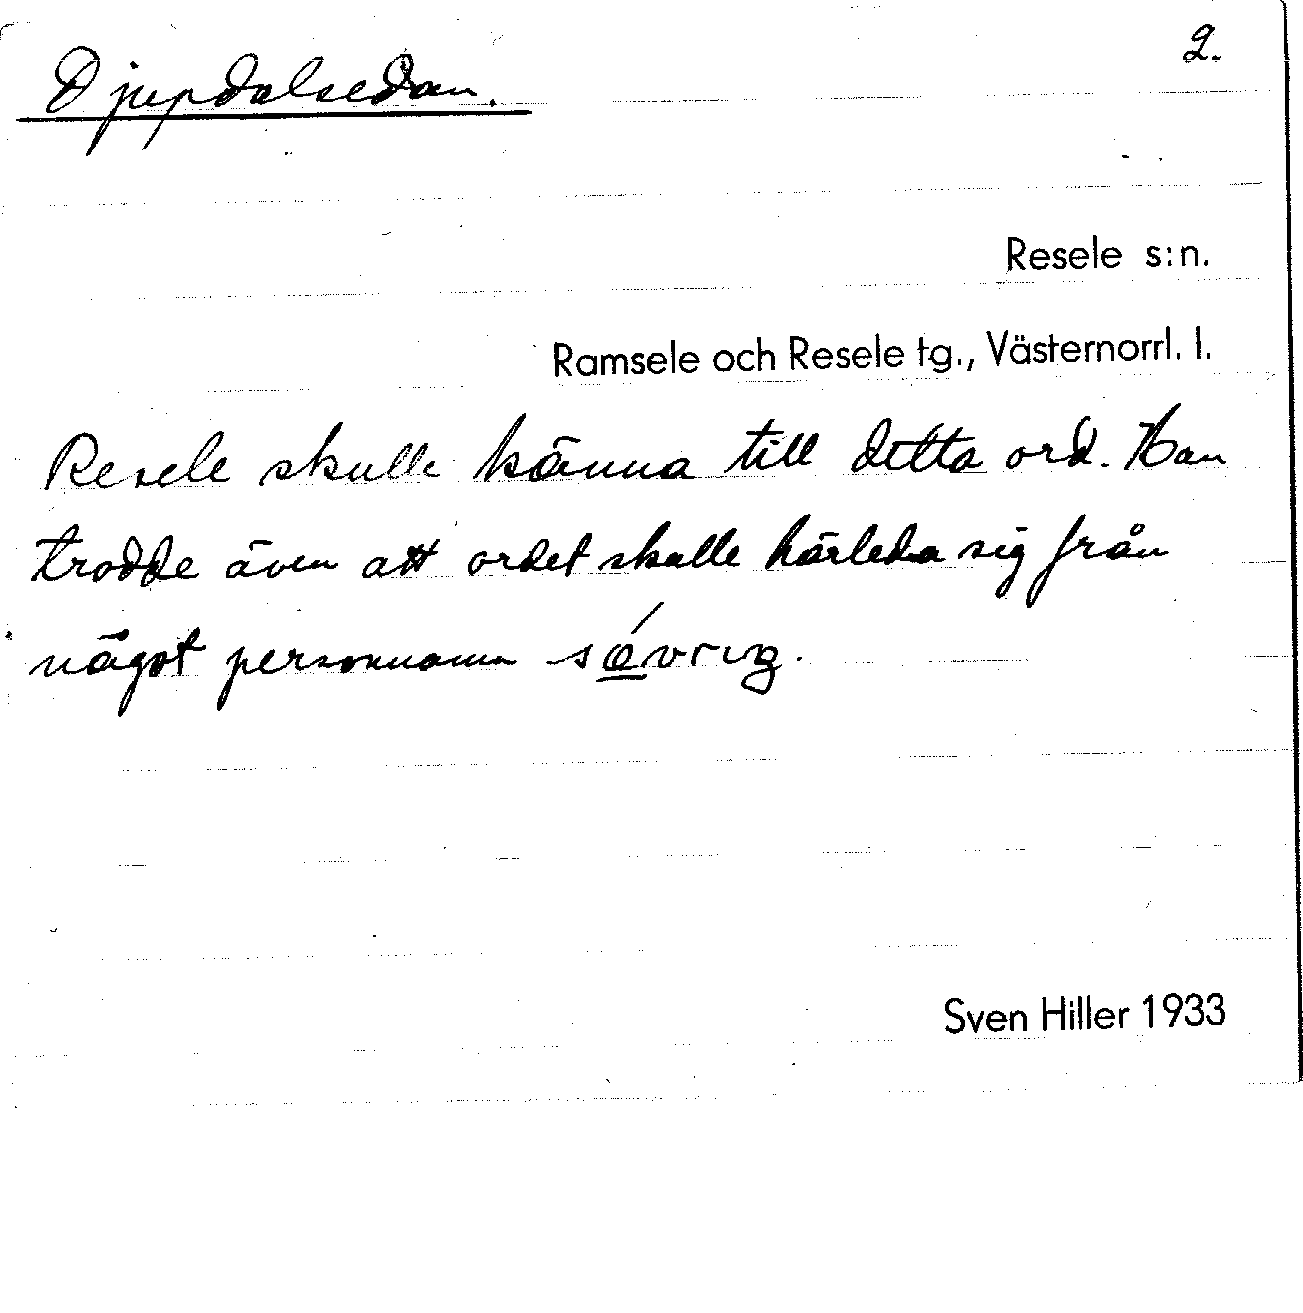 Djupdalsedan.
2.
Resele s:n.
Ramsele och Resele tg., Västernorrl. l.
Resele skulle känna till detta ord. Han
trodde även att ordet skulle härleda sig från
något personnamn
Sven Hiller 1933